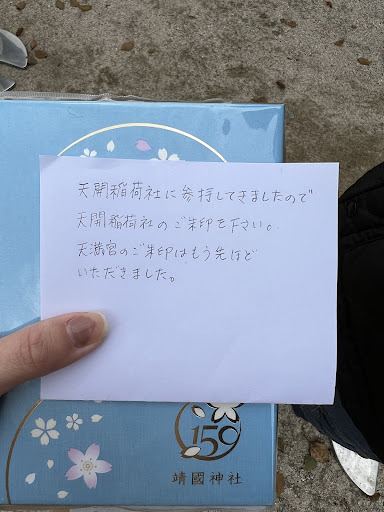 天開稲荷社に参拝してきましたので
天開稲荷社のご朱印を下さい。
天満宮のご朱印はもう先ほど
いただきました。
150
靖國神社